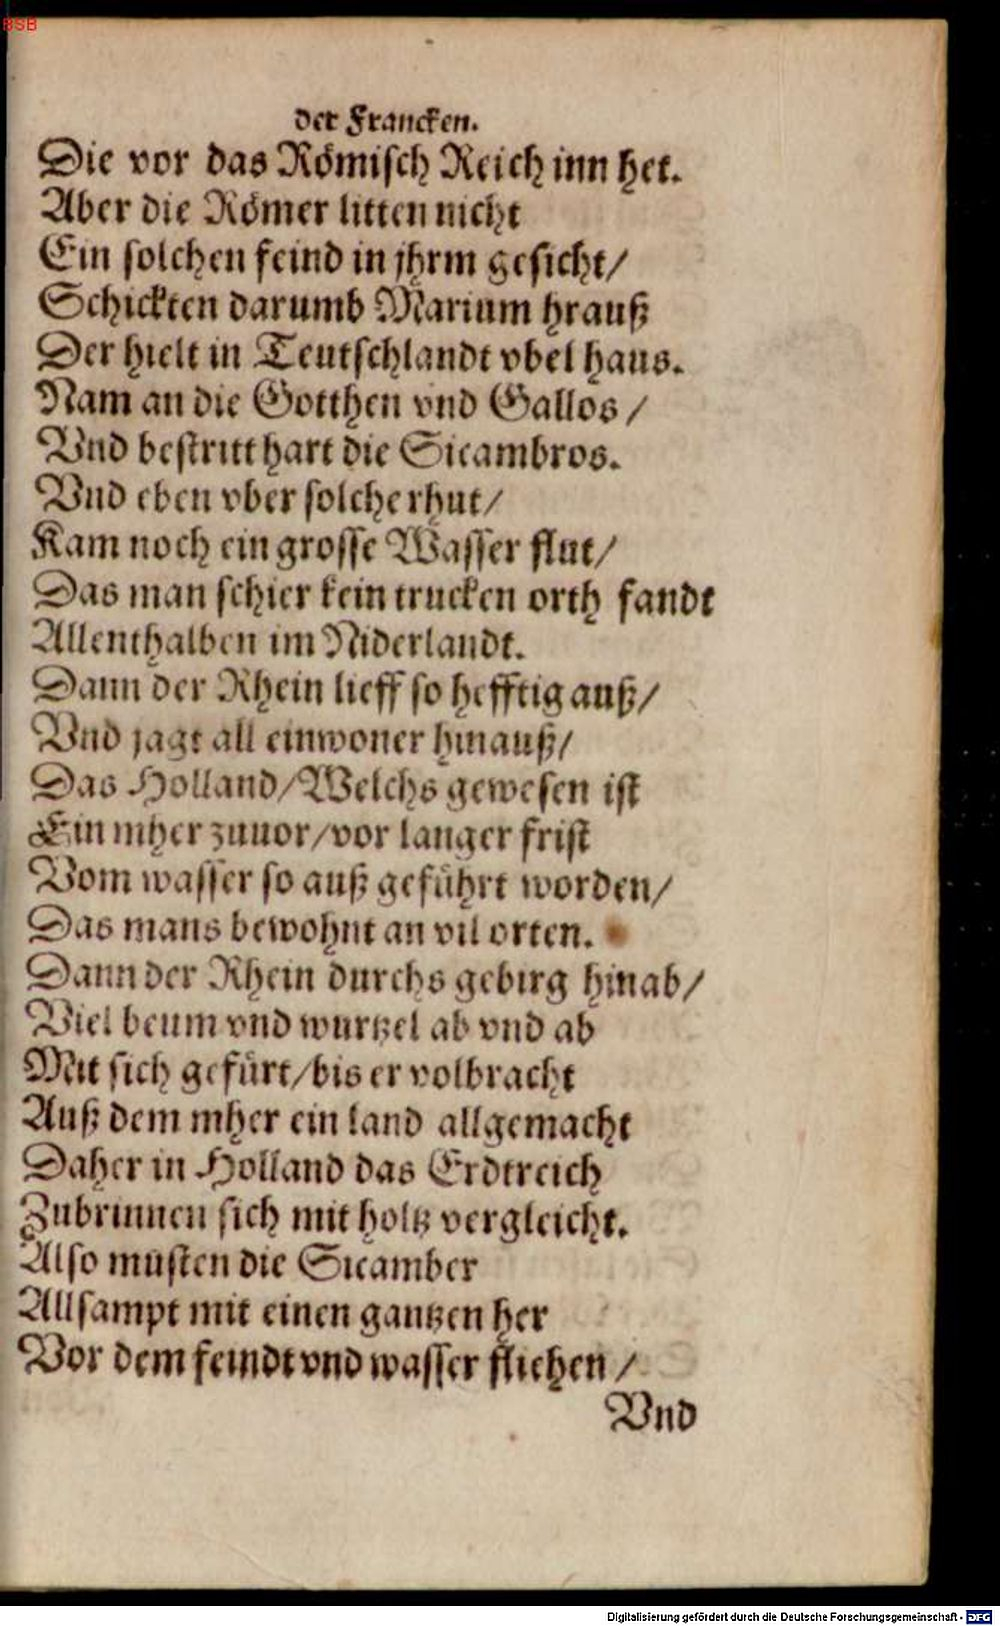 BSB
der Francken.
Die vor das Römisch Reich inn het.
Aber die Römer litten nicht
Ein solchen feind in jhrm gesicht/
Schickten darumb Marium hrauß
Der hielt in Teutschlandt vbel haus.
Nam an die Gotthen vnd Gallos/
Vnd bestritt hart die Sicambros.
Vnd eben vber solche rhut/
Kam noch ein grosse Wasser flut/
Das man schier kein trucken orth fandt
Allenthalben im Niderlandt.
Dann der Rhein lieff so hefftig auß/
Vnd jagt all einwoner hinauß/
Das Holland/Welchs gewesen ist
Ein mher zuuor/vor langer frist
Vom wasser so auß geführt worden/
Das mans bewohnt an vil orten.
Dann der Rhein durchs gebirg hinab/
Viel beum vnd wurtzel ab vnd ab
Mit sich gefürt/bis er volbracht
Auß dem mher ein land allgemacht
Daher in Holland das Erdtreich
Zubrinnen sich mit holtz vergleicht.
Also musten die Sicamber
Allsampt mit einen gantzen her
Vor dem feindt vnd wasser fliehen/
Vnd
Digitalisierung gefördert durch die Deutsche Forschungsgemeinschaft - DFG